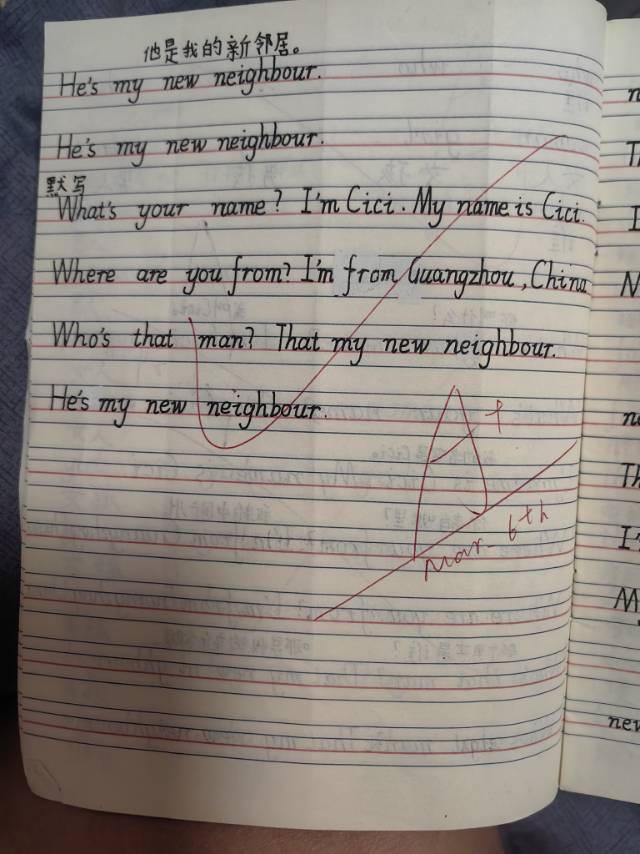 他是我的新邻居。
He's my new neighbour.
He's my new neighbour.
默写
What's your name? I'm Cici. My name is Cici.
Where are you from? I'm from Guangzhou, China
Who's that man? That my new neighbour.
He's my new neighbour.
A+
Mar. 6th